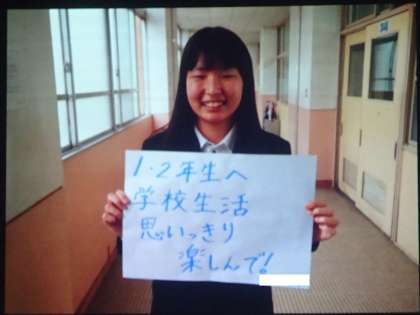 1・2年生へ
学校生活
思いっきり
楽しんで!